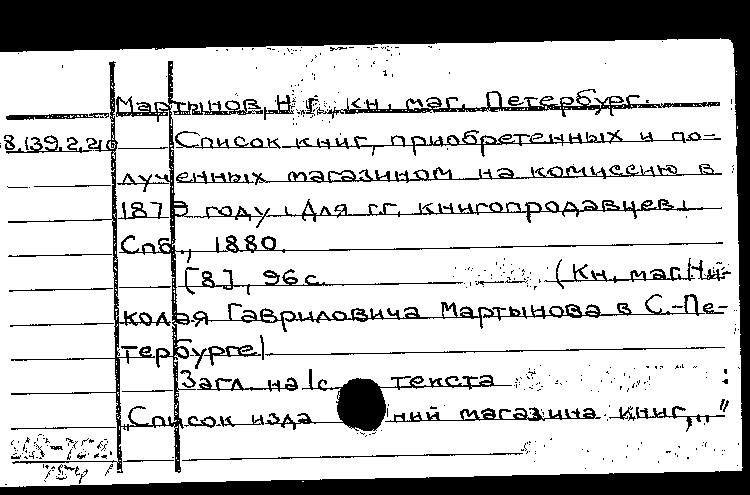 Мартынов, Н.Г., кн. маг. Петербург.
8.139.2.210 Список книг, приобретенных и по-
лученных магазином на комиссию в
1879 году. Для г.г. книгопродавцев.
Спб., 1880.
[8], 96 с. (Кн. маг. Ни-
колая Гавриловича Мартынова в С.-Пе-
тербурге)
Загл. на 1 с. текста :
"Список изданий магазина книг,..."